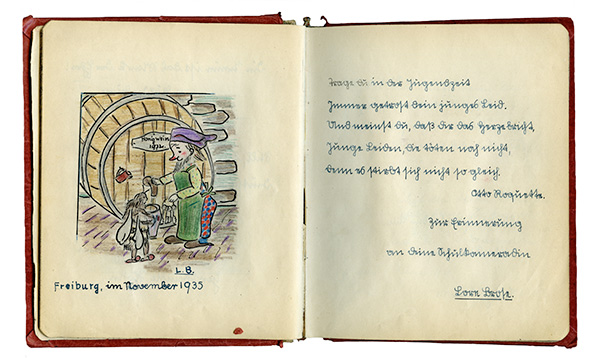 L.B.
Freiburg, im November 1935
Trage du in der Jugendzeit
Immer getrost dein junges Leid.
Und meinst du, daß dir das Herze bricht,
Junge Leiden, die töten noch nicht,
Denn es stirbt sich nicht so gleich.
Otto Roquette.
Zur Erinnerung
an deine Schulkameradin
Lore Brose.